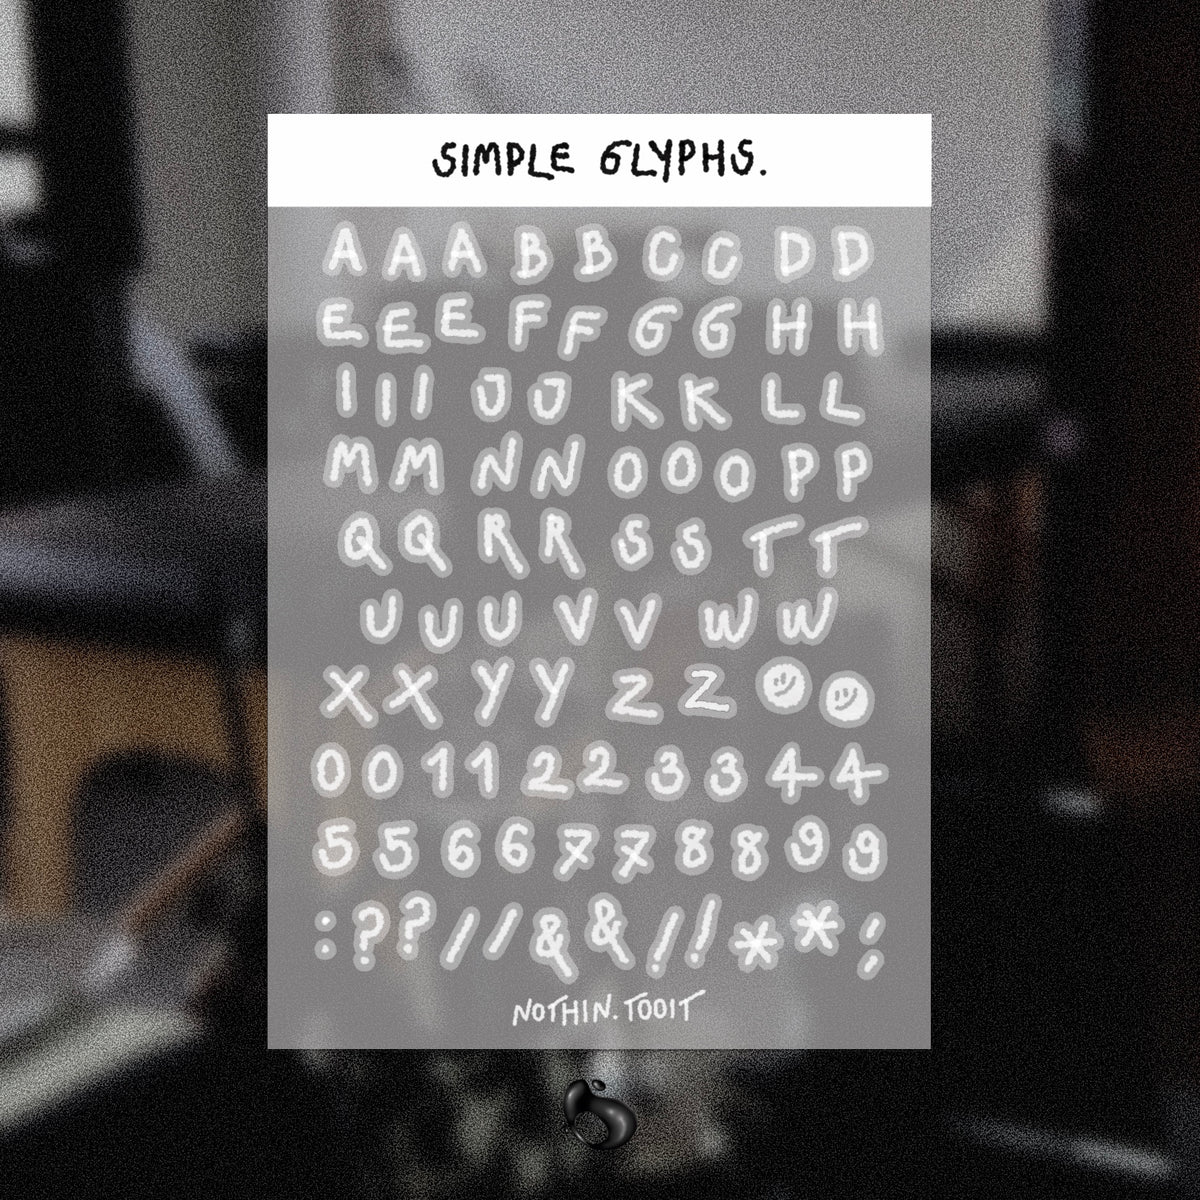 SIMPLE GLYPHS.
A A A B B C C D D
E E E F F G G H H
I I I J J K K L L
M M N N O O O P P
Q Q R R S S T T
U U U V V W W
X X Y Y Z Z
0 0 1 1 2 2 3 3 4 4
5 5 6 6 7 7 8 8 9 9
: ? ? / / & & ! ! * * ;
NOTHIN.TOOIT